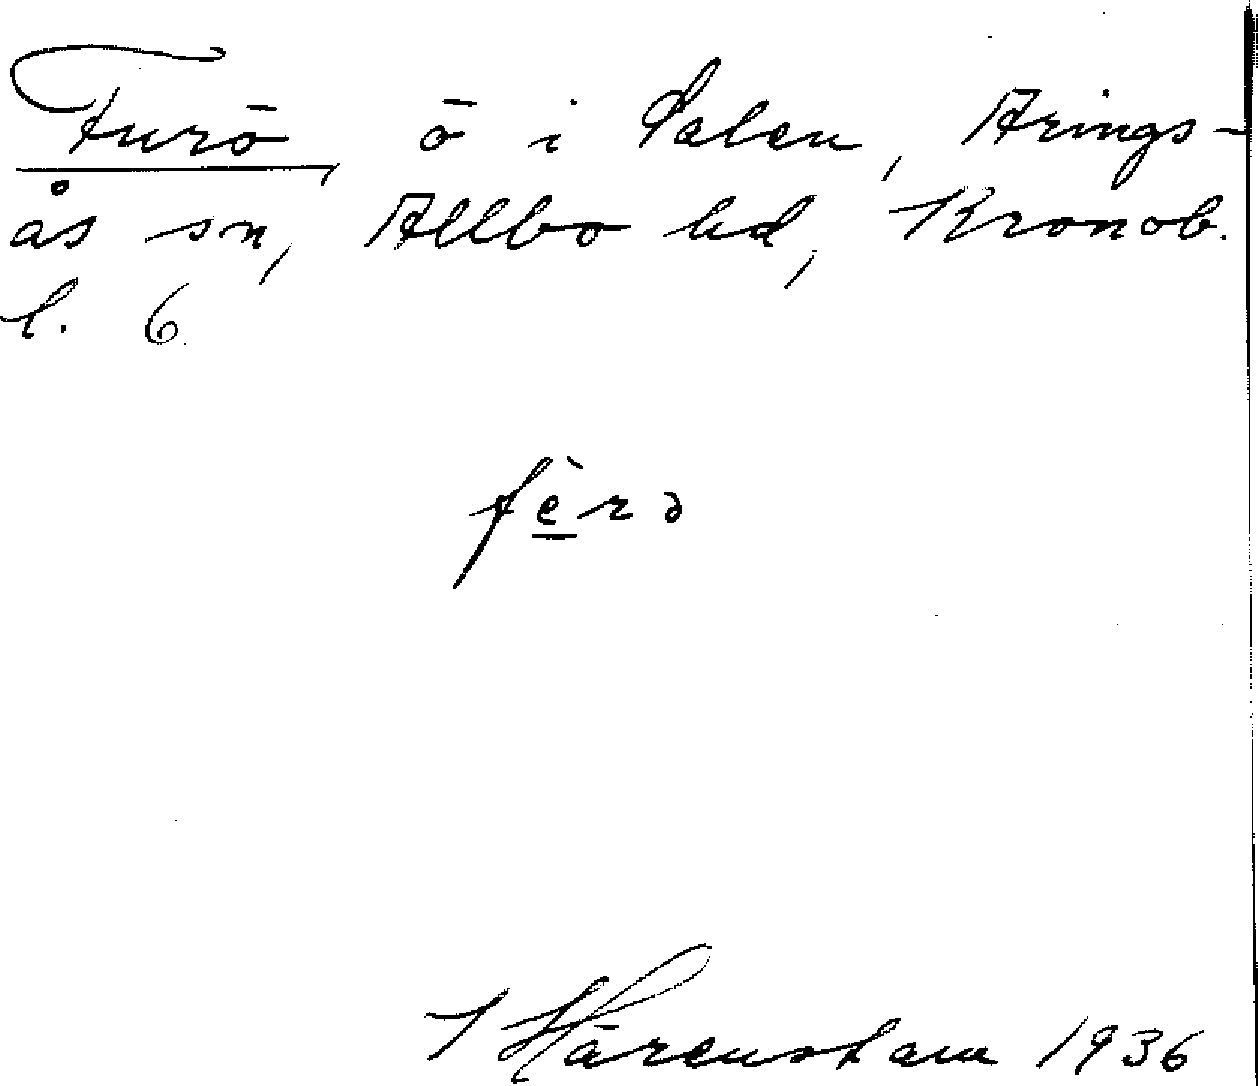 Furö, ö i Salen, Arings-
ås sn, Allbo hd, Kronob.
l. 6.
fèrə
I Härenstam 1936